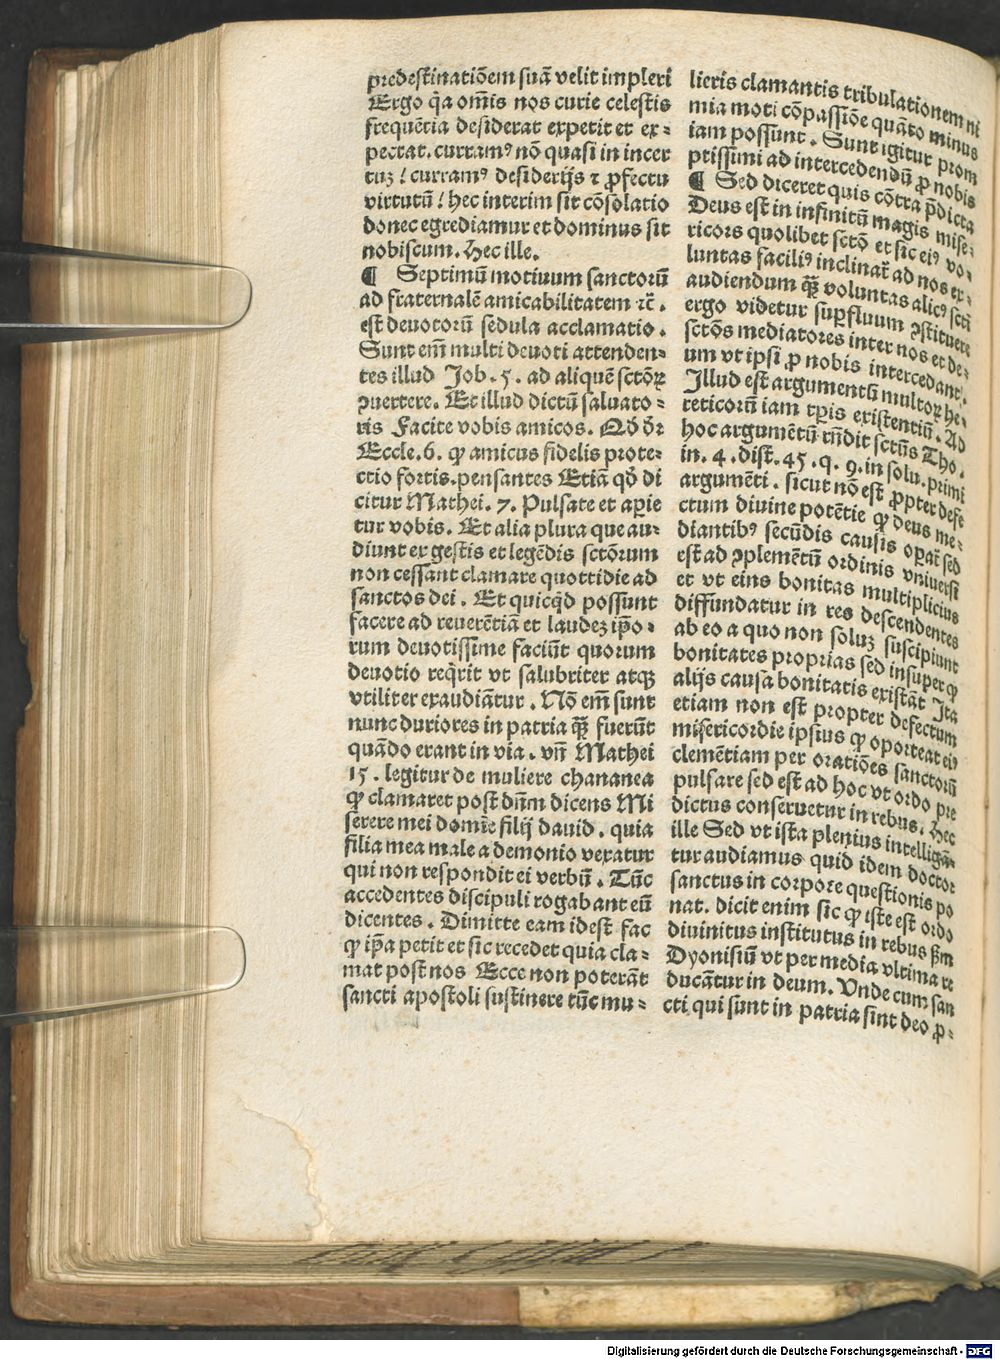 predestinatiōem suā velit impleri
Ergo q̄a om̄is nos curie celestis
frequētia desiderat expetit et ex⸗
pectat. curramꝰ nō quasi in incer
tuꝫ / curramꝰ desiderijs ⁊ ꝓfectu
virtutū / hec interim sit cōsolatio
donec egrediamur et dominus sit
nobiscum. Hec ille.
¶ Septimū motiuum sanctorū
ad fraternalē amicabilitatem ⁊c̄.
est deuotorū sedula acclamatio.
Sunt em̄ multi deuoti attenden⸗
tes illud Job. 5. ad aliquē sctōꝝ
ꝯuertere. Et illud dictū saluato⸗
ris Facite vobis amicos. Qd̄ dr̄
Eccle. 6. ꝙ amicus fidelis prote⸗
ctio fortis. pensantes Etiā qd̄ di
citur Mathei. 7. Pulsate et aꝑie
tur vobis. Et alia plura que au⸗
diunt ex gestis et legēdis sctōrum
non cessant clamare quottidie ad
sanctos dei. Et quicq̄d possunt
facere ad reuerētiā et laudeꝫ ip̄o⸗
rum deuotissime faciūt quorum
deuotio req̄rit vt salubriter atqꝫ
vtiliter exaudiātur. Nō em̄ sunt
nunc duriores in patria q̄ꝫ fuerūt
quādo erant in via. vn̄ Mathei
15. legitur de muliere chananea
ꝙ clamaret post dn̄m dicens Mi
serere mei domīe filij dauid. quia
filia mea male a demonio vexatur
qui non respondit ei verbū. Tūc
accedentes discipuli rogabant eū
dicentes. Dimitte eam idest fac
ꝙ ip̄a petit et sic recedet quia cla⸗
mat post nos Ecce non poterāt
sancti apostoli sustinere tūc mu⸗
lieris clamantis tribulationem ni
mia moti cōpassiōe quāto minus
iam possunt. Sunt igitur prom
ptissimi ad intercedendū ꝓ nobis
¶ Sed diceret quis cōtra p̄dicta
Deus est in infinitū magis mise⸗
ricors quolibet sctō et sic eiꝰ vo⸗
luntas faciliꝰ inclinat̄ ad nos ex⸗
audiendum q̄ꝫ voluntas alicꝰ scti
ergo videtur suꝑfluum ꝯstituere
sctōs mediatores inter nos et de⸗
um vt ipsi ꝓ nobis intercedant.
Illud est argumentū multoꝝ he⸗
reticorū iam tꝑis existentiū. Ad
hoc argumētū rn̄dit sctūs Tho.
in. 4. dist. 45. q. 9. in solu. primi
argumēti. sicut nō est ꝓpter defe
ctum diuine potētie ꝙ deus me⸗
diantibꝰ secūdis causis oꝑat̄ sed
est ad ꝯplemētū ordinis vniuersi
et vt eius bonitas multiplicius
diffundatur in res descendentes
ab eo a quo non soluꝫ suscipiunt
bonitates proprias sed insuper ꝙ
alijs causa bonitatis existāt Ita
etiam non est propter defectum
misericordie ipsius ꝙ oporteat eiꝰ
clemētiam per oratiōes sanctorū
pulsare sed est ad hoc vt ordo pre
dictus conseruetur in rebus. Hec
ille Sed vt ista plenius intelligā⸗
tur audiamus quid idem doctor
sanctus in corpore questionis po
nat. dicit enim sic ꝙ iste est ordo
diuinitus institutus in rebus ẜm
Dyonisiū vt per media vltima re
ducātur in deum. Unde cum san
cti qui sunt in patria sint deo ꝓ⸗
Digitalisierung gefördert durch die Deutsche Forschungsgemeinschaft - DFG